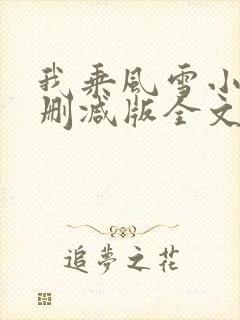 我乘风雪小
删减版全文
追夢之花